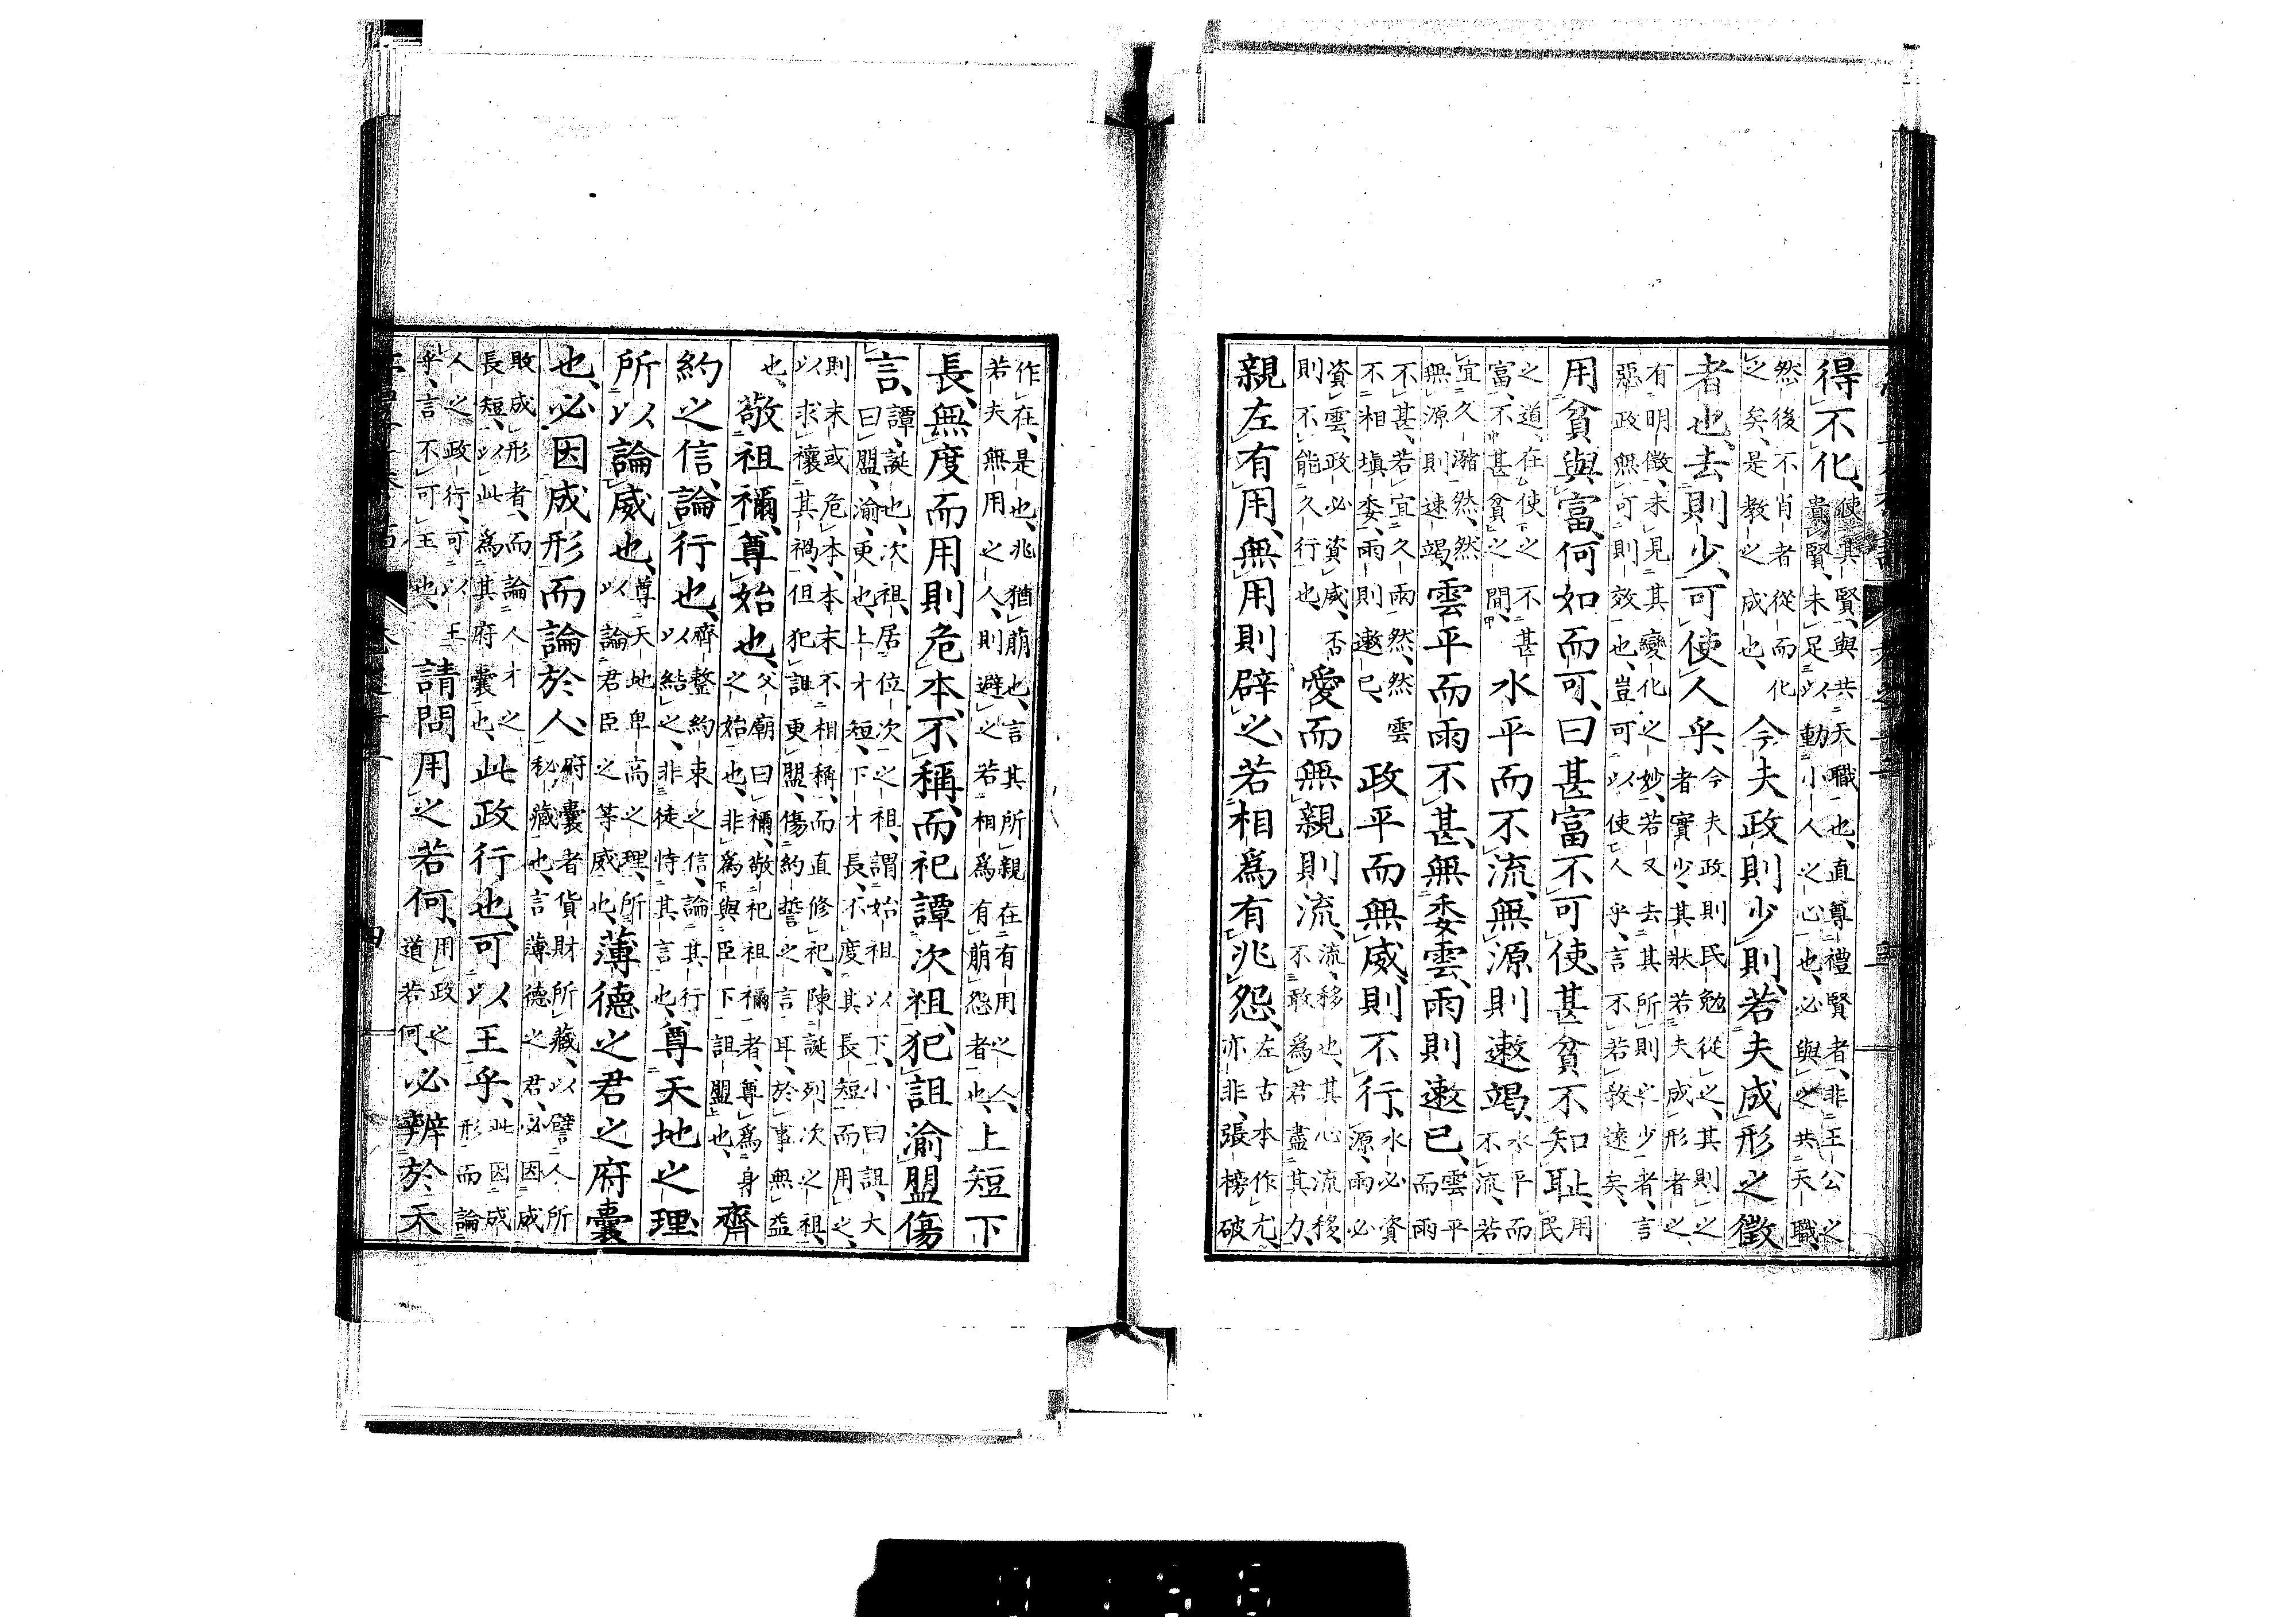 得不化、使其賢與共天職也、直尊禮賢者、非王公之貴賢、未足以動小人之心也、必與之共天職、
然後不肖者從而化之矣、是教之成也、今夫政則少則、若夫成形之徵
者也、去則少、可使人乎、今夫政則民勉從之、其則之者實少、其狀若夫成形者之、
有明徵、未見其變化之妙、若又去其所則之少者、言惡政無可則效也、豈可以使人乎、言不若教遠矣、
用貧與富、何如而可、曰甚富不可使、甚貧不知耻、用民
之道、在使之不甚富、不甚貧之間、水平而不流、無源則遬竭、水平而不流、若
宜久瀦然、然無源則速竭、雲平而雨不甚、無委雲、雨則遬已、雲平而雨
不甚、若宜久雨然、然雲不相塡委、雨則遬已、政平而無威、則不行、水必資源、雨必
資雲、政必資威、否則不能久行也、愛而無親則流、流、移也、其心流移、不敢爲君盡其力、
親左有用、無用則辟之、若相爲有兆怨、左古本作尤、亦非、張榜破
作在、是也、兆猶萠也、言其所親在有用之人、若夫無用之人、則避之、若相爲有萠怨者也、上短下
長、無度而用則危本、不稱、而祀譚次祖、犯詛渝盟傷
言、譚、誕也、次祖、居位次之祖、謂始祖以下、小曰詛、大曰盟、渝、更也、上才短、下才長、不度其長短而用之、
則末或危本、本末不相稱、而直修祀、陳誕列次之祖、以求禳其禍、但犯詛更盟、傷約誓之言耳、於事無益
也、敬祖禰、尊始也、父廟曰禰、敬祀祖禰者、尊爲身之始也、非爲與臣下詛盟也、齊
約之信、論行也、齊整約束之信、論其行以結之、非徒恃其言也、尊天地之理
所以論威也、尊天地卑高之理、所以論君臣之等威也、薄德之君之府囊
也、必因成形而論於人、府囊者貨財所藏、以譬人所秘藏也、言薄德之君、必因成
敗成形者、而論人才之長短、以此爲其府囊也、此政行也、可以王乎、此因成形而論
人之政行、可以王乎、言不可王也、請問用之若何、用政之道若何、必辨於天